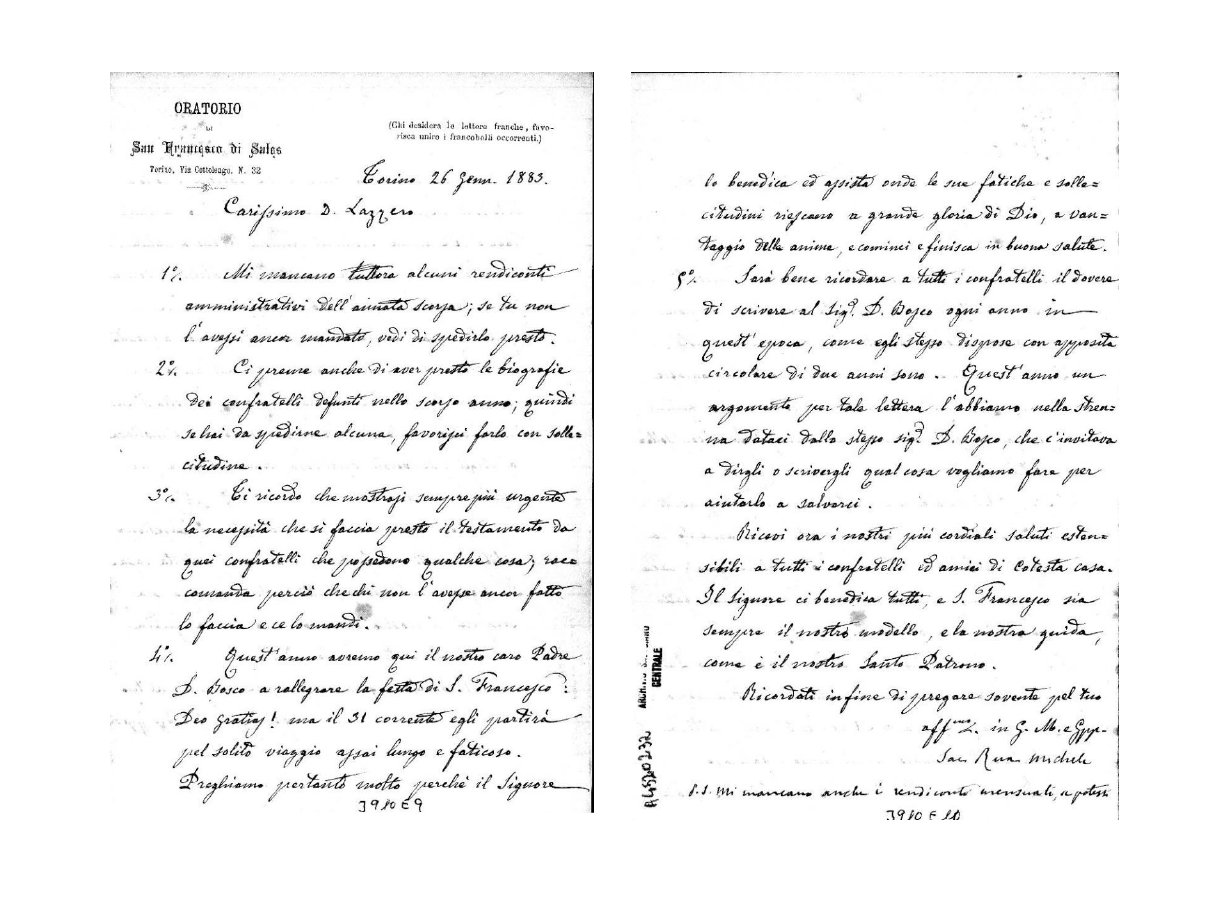 ORATORIO
DI
San Francesco di Sales
Torino, Via Cottolengo, N. 32
(Chi desidera le lettere franche, favo-
risca unire i francobolli occorrenti.)
Torino 26 Genn. 1883.
Carissimo D. Lazzero
1°. Mi mancano tuttora alcuni rendiconti
amministrativi dell'annata scorsa; se tu non
l'avessi ancor mandato, vedi di spedirlo presto.
2°. Ci preme anche di aver presto le biografie
dei confratelli defunti nello scorso anno; quindi
se hai da spedirne alcuna, favorisci farlo con solle=
citudine.
3°. Ti ricordo che mostrasi sempre più urgente
la necessità che si faccia presto il testamento da
quei confratelli che possedono qualche cosa; rac=
comanda perciò che chi non l'avesse ancor fatto
lo faccia e ce lo mandi.
4°. Quest'anno avremo qui il nostro caro Padre
D. Bosco a rallegrare la festa di S. Francesco:
Deo gratias! ma il 31 corrente egli partirà
pel solito viaggio assai lungo e faticoso.
Preghiamo pertanto molto perchè il Signore
3980 E 9
lo benedica ed assista onde le sue fatiche e solle=
citudini riescano a grande gloria di Dio, a van=
taggio delle anime, e cominci e finisca in buona salute.
5°. Sarà bene ricordare a tutti i confratelli il dovere
di scrivere al Sigr. D. Bosco ogni anno in
quest'epoca, come egli stesso dispose con apposita
circolare di due anni sono. Quest'anno un
argomento per tale lettera l'abbiamo nella stren=
na dataci dallo stesso sigr. D. Bosco, che c'invitava
a dirgli o scrivergli qual cosa vogliamo fare per
aiutarlo a salvarci.
Ricevi ora i nostri più cordiali saluti esten=
sibili a tutti i confratelli ed amici di cotesta casa.
Il Signore ci benedica tutti, e S. Francesco sia
sempre il nostro modello, e la nostra guida,
come è il nostro Santo Patrono.
Ricordati infine di pregare sovente pel tuo
affmo in G. M. e Gppe.
Sac Rua Michele
P.S. Mi mancano anche i rendiconti mensuali, a
3980 E 10
CENTRALE